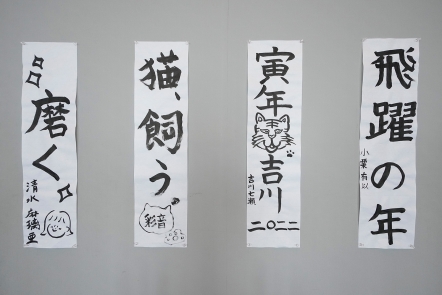 飛躍の年
小栗有以
寅年
吉川
吉川七瀬
二〇二二
猫、飼う
彩音
磨く
清水麻璃亜